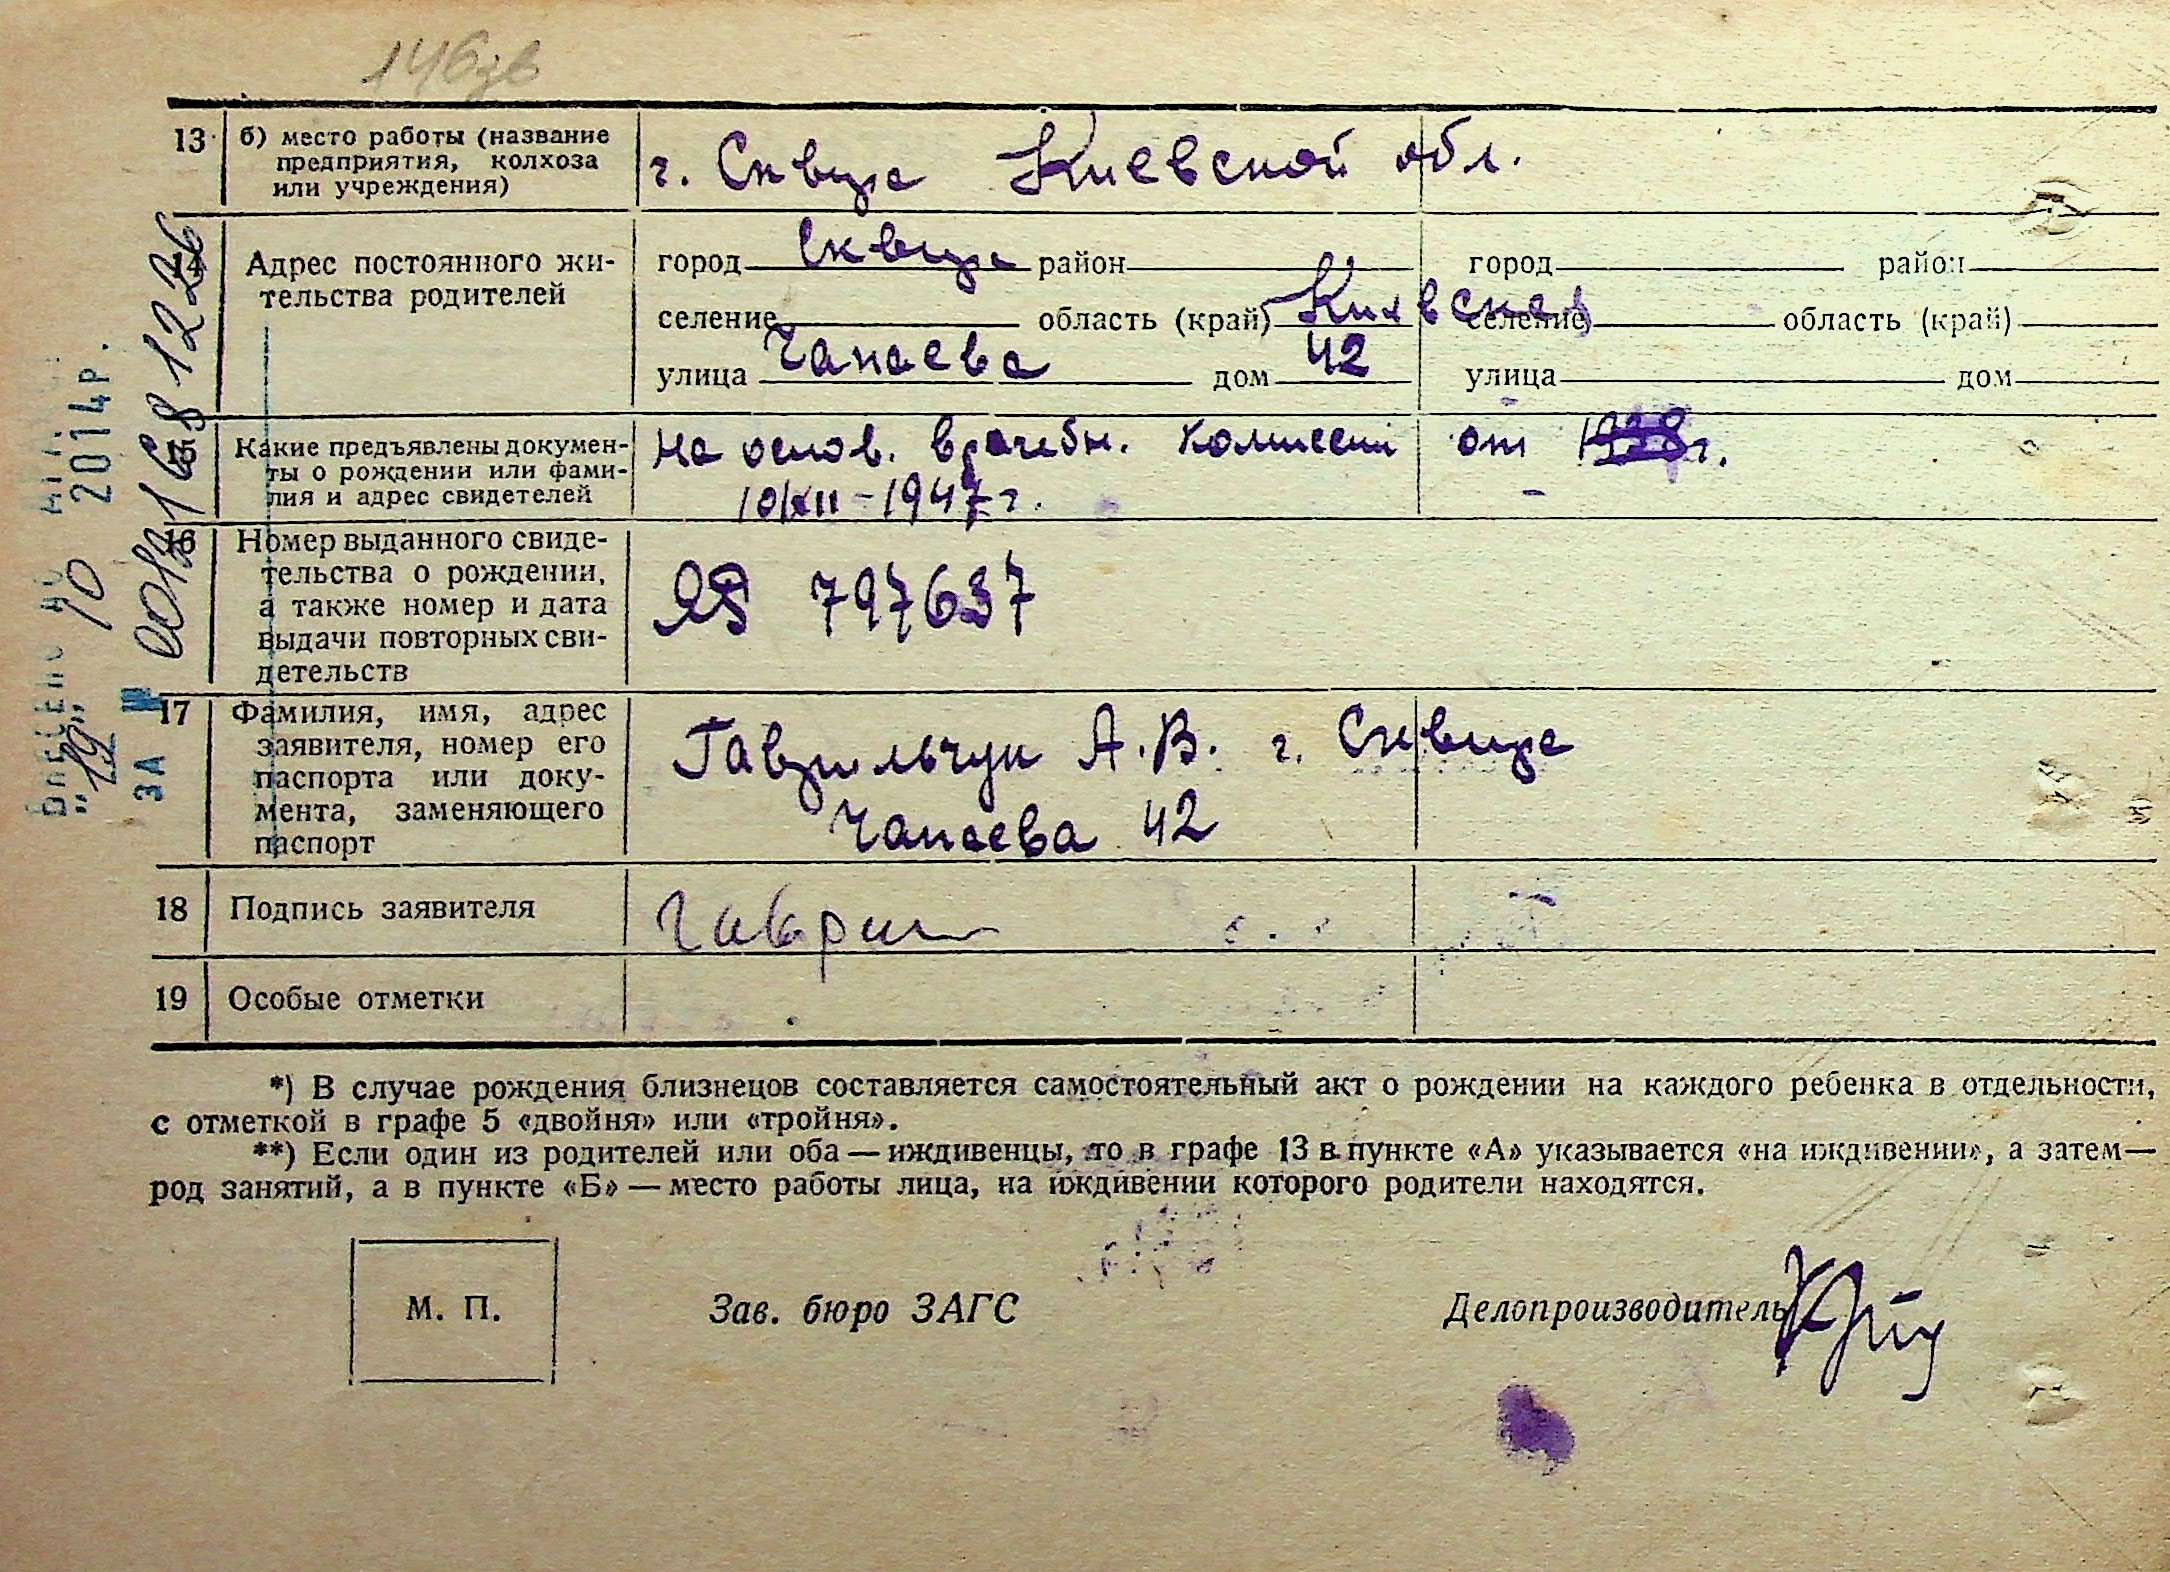 146зв
13 б) место работы (название
предприятия, колхоза
или учреждения)
г. Сквира Киевской обл.
Адрес постоянного жи-
тельства родителей
город Сквира район
селение область (край) Киевская
улица Чапаева дом 42
город район
селение область (край)
улица дом
Какие предъявлены докумен-
ты о рождении или фами-
лия и адрес свидетелей
на основ. врачебн. комиссии от г.
10/XII - 1947 г.
16 Номер выданного свиде-
тельства о рождении,
а также номер и дата
выдачи повторных сви-
детельств
ЯЯ 797637
17 Фамилия, имя, адрес
заявителя, номер его
паспорта или доку-
мента, заменяющего
паспорт
Гаврильчук А.В. г. Сквира
Чапаева 42
18 Подпись заявителя
Гаврил
19 Особые отметки
*) В случае рождения близнецов составляется самостоятельный акт о рождении на каждого ребенка в отдельности,
с отметкой в графе 5 «двойня» или «тройня».
**) Если один из родителей или оба — иждивенцы, то в графе 13 в пункте «А» указывается «на иждивении», а затем —
род занятий, а в пункте «Б» — место работы лица, на иждивении которого родители находятся.
М. П.
Зав. бюро ЗАГС
Делопроизводитель
"19" 10 2014р.
ЗА №